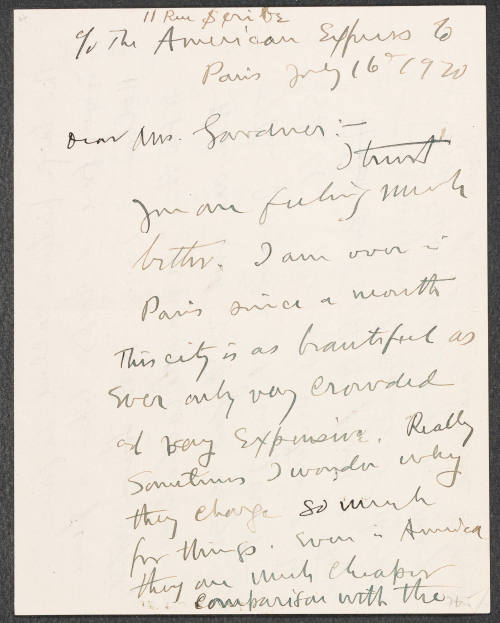 11 Rue Scribe
c/o The American Express Co
Paris July 16th 1920
Dear Mrs. Gardner:—
I trust
you are feeling much
better. I am over in
Paris since a month
This city is as beautiful as
ever only very crowded
and very Expensive. Really
sometimes I wonder why
they charge so much
for things. Even in America
they are much cheaper
comparison with the